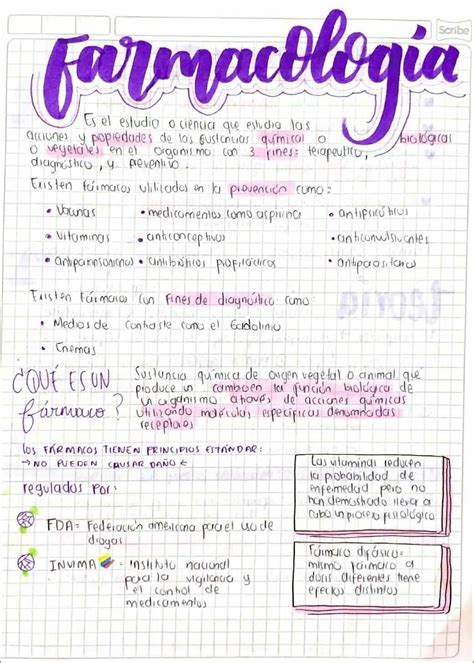 Scribe
Farmacología
Es el estudio o ciencia que estudia las
acciones y propiedades de las sustancias química o biológicas
o vegetales en el organismo con 3 fines: terapeutico,
diagnóstico, y preventivo.
Existen fármacos utilizados en la prevención como:
• Vacunas • medicamentos como aspirina • antipsicóticos
• Vitaminas • anticonceptivos • anticonvulsivantes
• Antiparkinsoniano • antibióticos profilácticos • antiparasitarios
Existen Fármacos con fines de diagnóstico como:
• Medios de contraste como el Gadolinio
• Enemas
¿QUÉ ES UN
fármaco?
Sustancia química de origen vegetal o animal que
produce un cambio en la función biológica de
un organismo a través de acciones químicas
utilizando moléculas especificas denominadas
receptores
LOS FÁRMACOS TIENEN PRINCIPIOS ESTÁNDAR:
→ NO PUEDEN CAUSAR DAÑO ←
regulados por:
FDA = Federación americana para el uso de
drogas
INVIMA = Instituto nacional
para la vigilancia y
el control de
medicamentos
Las vitaminas reducen
la probabilidad de
enfermedad pero no
han demostrado lleva a
cabo un proceso fisiológico
Fármaco difásico=
mismo fármaco a
dosis diferentes tiene
efectos distintos